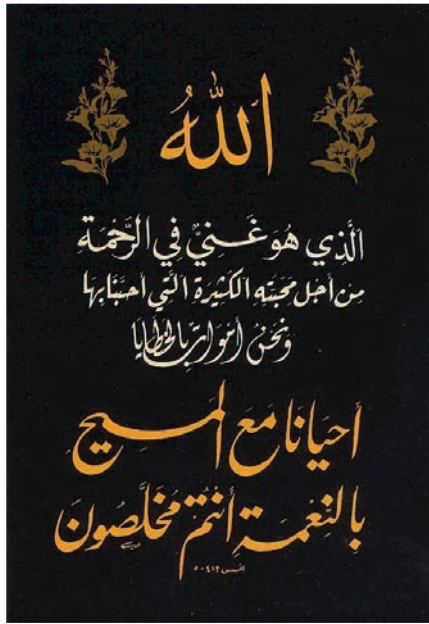 اَللهُ
الَّذِي هُوَ غَنِيٌّ فِي الرَّحْمَةِ
مِن أجل مَحَبَّتِهِ الكَثِيرَة الَّتِي أحَبَّنَا بِهَا
وَنَحْنُ أَمْوَاتٌ بِالخَطَايَا
أَحيَانَا مَعَ المَسِيحِ
بِالنِّعْمَةِ أَنْتُمْ مُخَلَّصُونَ
افسس ٢:٤-٥